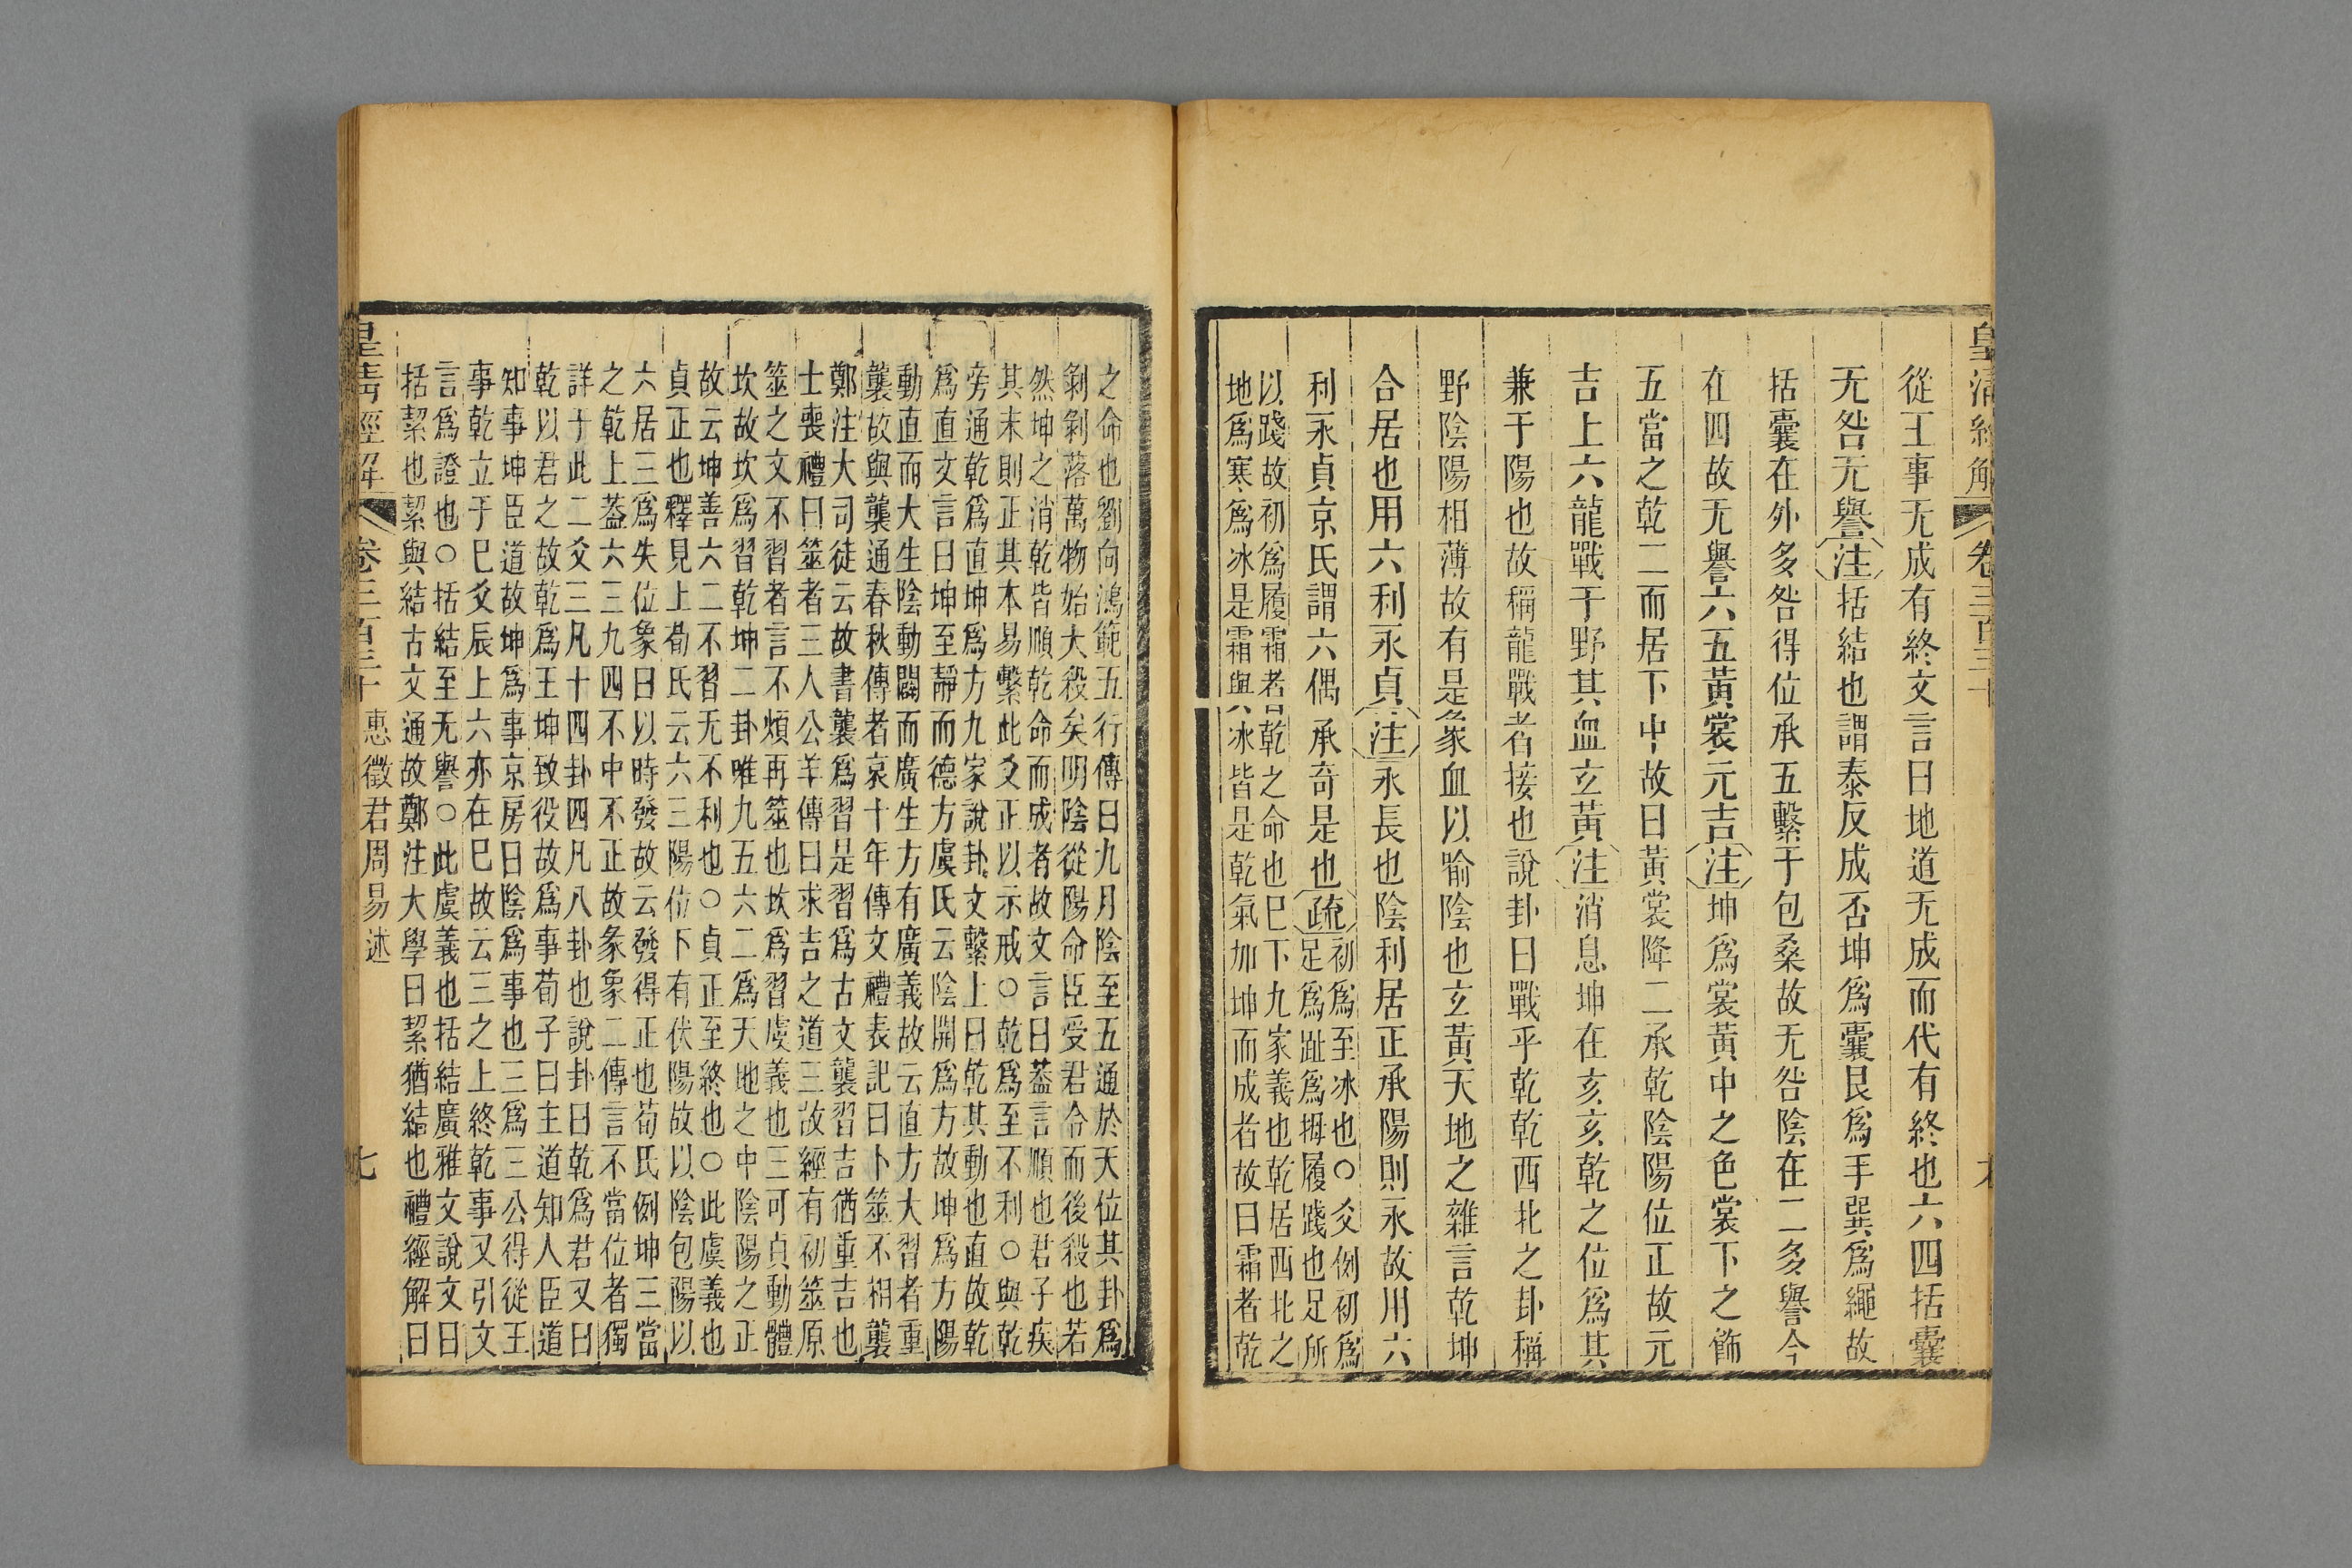 皇清經解
卷三百三十
從王事无成有終文言曰地道无成而代有終也六四括囊
无咎无譽注括結也謂泰反成否坤爲囊艮爲手巽爲繩故
括囊在外多咎得位承五繫于包桑故无咎陰在二多譽今
在四故无譽六五黃裳元吉注坤爲裳黃中之色裳下之飾
五當之乾二而居下中故曰黃裳降二承乾陰陽位正故元
吉上六龍戰于野其血玄黃注消息坤在亥亥乾之位爲其
兼于陽也故稱龍戰者接也說卦曰戰乎乾乾西北之卦稱
野陰陽相薄故有是象血以喻陰也玄黃天地之雜言乾坤
合居也用六利永貞注永長也陰利居正承陽則永故用六
利永貞京氏謂六偶承奇是也疏
初爲至冰也○爻例初爲
足爲趾爲拇履踐也足所
以踐故初爲履霜者乾之命也巳下九家義也乾居西北之
地爲寒爲冰是霜與冰皆是乾氣加坤而成者故曰霜者乾
之命也劉向鴻範五行傳曰九月陰至五通於天位其卦爲
剝剝落萬物始大殺矣明陰從陽命臣受君令而後殺也若
然坤之消乾皆順乾命而成者故文言曰葢言順也君子疾
其末則正其本易繫此爻正以示戒○乾爲至不利○與乾
旁通乾爲直坤爲方九家說卦文繫上曰乾其動也直故乾
爲直文言曰坤至靜而德方虞氏云陰開爲方故坤爲方陽
動直而大生陰動闢而廣生方有廣義故云直方大習者重
襲故與襲通春秋傳者哀十年傳文禮表記曰卜筮不相襲
鄭注大司徒云故書襲爲習是習爲古文襲習吉猶重吉也
士喪禮曰筮者三人公羊傳曰求吉之道三故經有初筮原
筮之文不習者言不煩再筮也坎爲習虞義也三可貞動體
坎故坎爲習乾坤二卦唯九五六二爲天地之中陰陽之正
故云坤善六二不習无不利也○貞正至終也○此虞義也
貞正也釋見上荀氏云六三陽位下有伏陽故以陰包陽以
六居三爲失位象曰以時發故云發得正也荀氏例坤三當
之乾上葢六三九四不中不正故彖象二傳言不當位者獨
詳于此二爻三凡十四卦四凡八卦也說卦曰乾爲君又曰
乾以君之故乾爲王坤致役故爲事荀子曰主道知人臣道
知事坤臣道故坤爲事京房曰陰爲事也三爲三公得從王
事乾立于巳爻辰上六亦在巳故云三之上終乾事又引文
言爲證也○括結至无譽○此虞義也括結廣雅文說文曰
括絜也絜與結古文通故鄭注大學曰絜猶結也禮經解曰
皇清經解
卷三百三十
惠徵君周易述
七